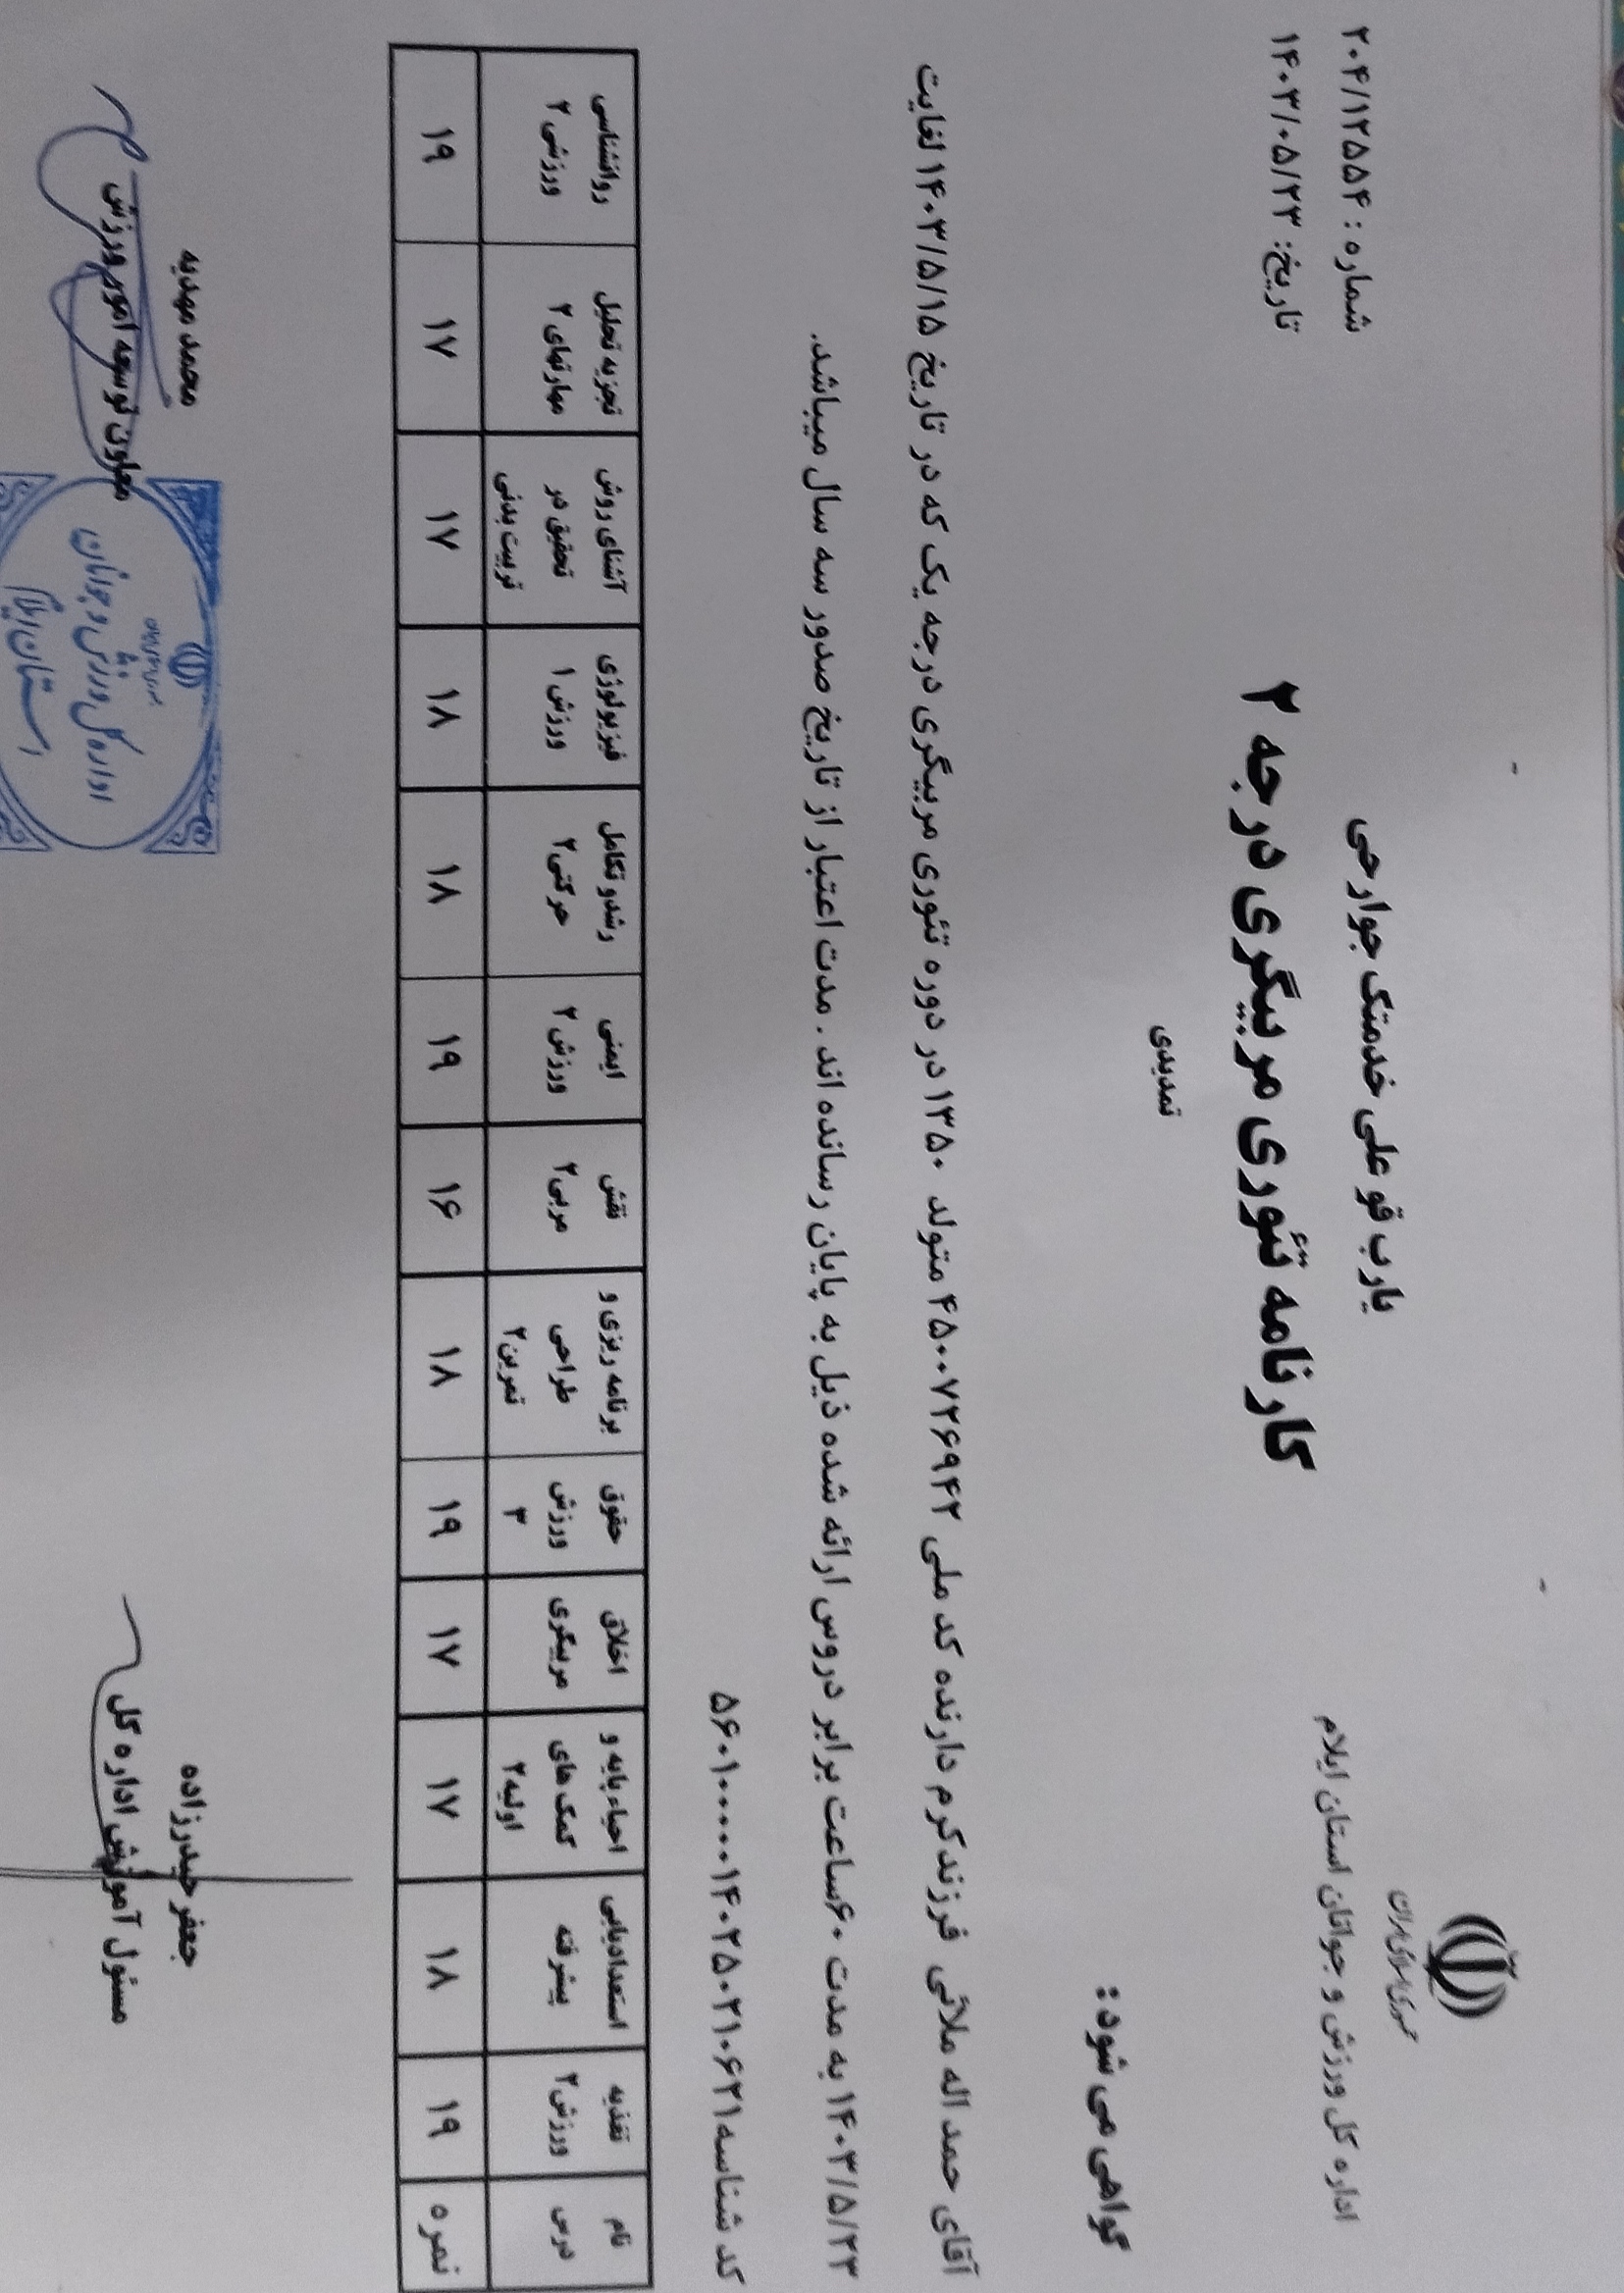 جمهوری اسلامی ایران
اداره کل ورزش و جوانان استان ایلام
یارب قو علی خدمتک جوارحی
کارنامه تئوری مربیگری درجه ۲
تمدیدی
شماره : ۲۰۴/۱۲۵۵۴
تاریخ: ۱۴۰۳/۰۵/۲۳
گواهی می شود:
آقای حمد اله ملائی فرزند کرم دارنده کد ملی ۴۵۰۰۷۲۶۹۴۲ متولد ۱۳۵۰ در دوره تئوری مربیگری درجه یک که در تاریخ ۱۴۰۳/۵/۱۵ لغایت
۱۴۰۳/۵/۲۳ به مدت ۶۰ساعت برابر دروس ارائه شده ذیل به پایان رسانده اند . مدت اعتبار از تاریخ صدور سه سال میباشد.
کد شناسه ۵۶۰۱۰۰۰۰۰۱۴۰۲۵۰۲۱۰۶۲۱
نام درس تغذیه ورزش۲ استعدادیابی پیشرفته احیاء پایه و کمک های اولیه۲ اخلاق مربیگری حقوق ورزش ۳ برنامه ریزی و طراحی تمرین۲ نقش مربی۲ ایمنی ورزش ۲ رشد و تکامل حرکتی۲ فیزیولوژی ورزش ۱ آشنای روش تحقیق در تربیت بدنی تجزیه تحلیل مهارتهای ۲ روانشناسی ورزشی ۲
نمره ۱۹ ۱۸ ۱۷ ۱۷ ۱۹ ۱۸ ۱۶ ۱۹ ۱۸ ۱۸ ۱۷ ۱۷ ۱۹
جعفر حیدرزاده
مسئول آموزش اداره کل
محمد مهدیه
معاون توسعه امور ورزش
اداره کل ورزش و جوانان
استان ایلام